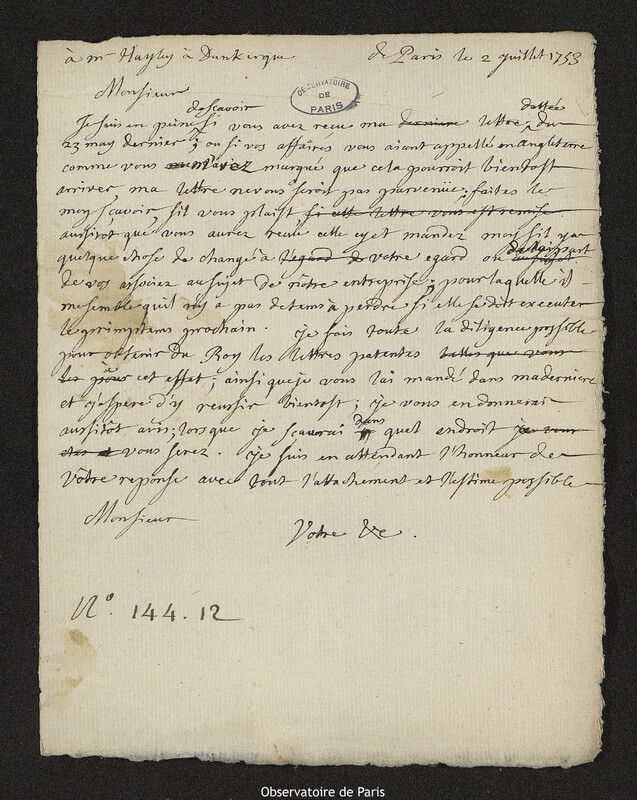 à mr Hayley à Dunkerque de Paris le 2 juillet 1753
OBSERVATOIRE DE PARIS
Monsieur
Je suis en peine de sçavoir si vous avez recu ma derniere lettre dattée du
23 may dernier; ou si vos affaires vous aiant appellé en angleterre
comme vous m'aviez marqué que cela pourroit bientost
arriver, ma lettre ne vous seroit pas parvenüe; faites le
moy sçavoir, s'il vous plaist si cette lettre vous est remise
aussitôt que vous aurez recu celle cy et mandez moy s'il y a
quelque chose de changé à l'égard de votre egard ou de la part
de vos associez au sujet de nôtre entreprise; pour laquelle il
me semble qu'il n'y a pas de tems à perdre si elle se doit executer
le printems prochain. Je fais toute la diligence possible
pour obtenir du Roy les lettres patentes telles que vous
à cet effet; ainsi que je vous l'ai mandé dans ma derniere
et j'espere d'y reussir bientost; je vous en donnerai
aussitôt avis; lorsque je scaurai dans quel endroit je vous
vous serez. Je suis en attendant l'honneur de
Vôtre reponse avec tout l'attachement et l'estime possible
Monsieur
Votre &c.
No. 144.12
Observatoire de Paris